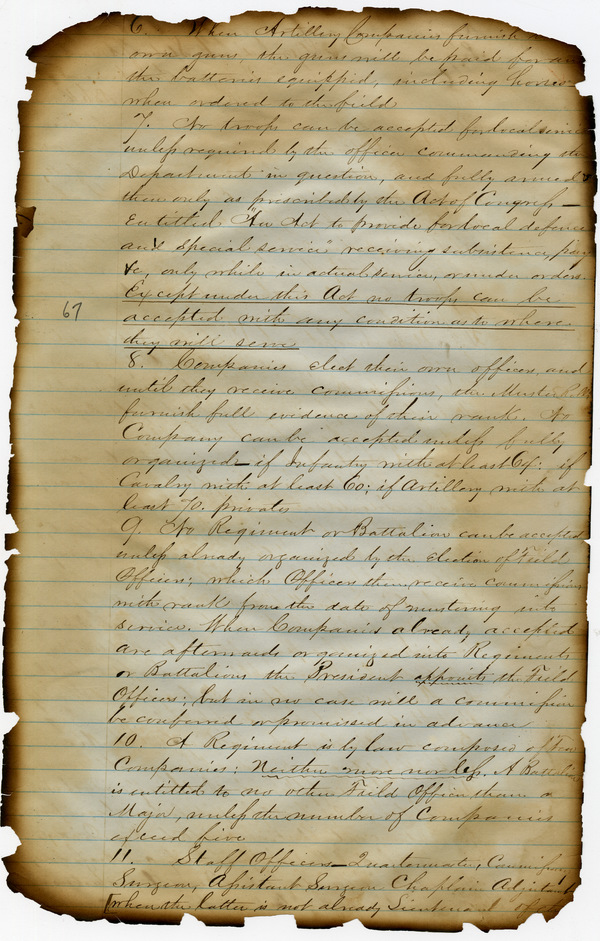 6. When Artillery Companies furnish
own guns, the guns will be paid for and
the batteries equipped, including horses
when ordered to the field
7. No troops can be accepted for local service
unless required by the officer commanding the
Department in question, and fully armed &
then only as prescribed by the Act of Congress—
Entitled "An Act to provide for local defence
and special service" receiving subsistence, pay
&c, only while in actual service, or under orders.
Except under this Act no troops can be
67
accepted with any condition as to where
they will serve
8. Companies elect their own officers, and
until they receive commissions, the Muster Rolls
furnish full evidence of their rank. No
Company can be accepted unless fully
organized—if Infantry with at least 64; if
Cavalry with at least 60; if Artillery with at
least 70. privates
9. No Regiment or Battalion can be accepted
unless already organized by the election of Field
Officers; which Officers then receive commissions
with rank from the date of mustering into
service. When Companies already accepted
are afterwards organized into Regiments
or Battalions the President appoints the Field
Officers; but in no case will a commission
be conferred or promised in advance
10. A Regiment is by law composed of Ten
Companies: Neither more nor less. A Battalion
is entitled to no other Field Officer than a
Major, unless the number of Companies
exceed five
11. Staff Officers—Quartermaster, Commissary,
Surgeon, Assistant Surgeon Chaplain Adjutant
when the latter is not already Lieutenant of